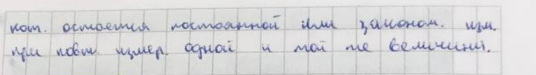 кот. остается постоянной или законом. изм.
при повт. измер. одной и той же величины.